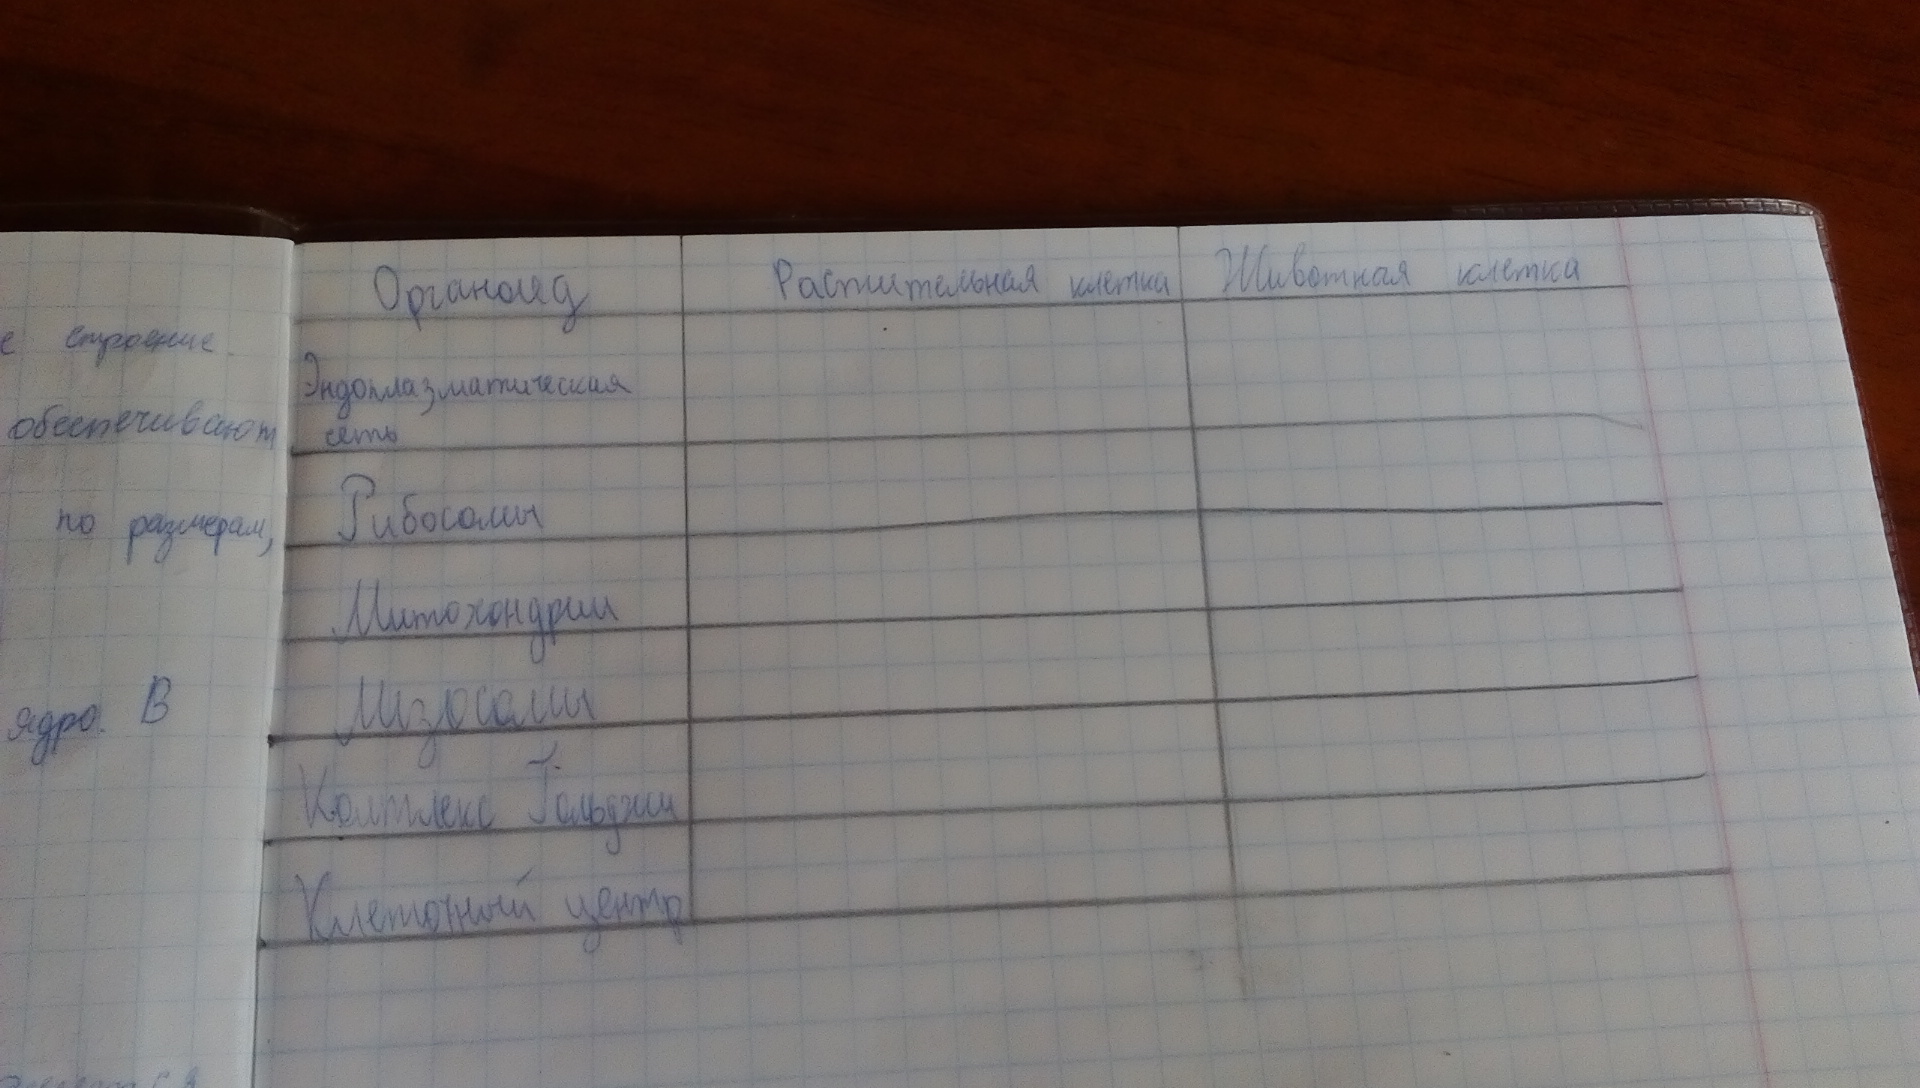 е строение.
обеспечивают
по размерам,
ядро. В
Органоид Растительная клетка Животная клетка
Эндоплазматическая
сеть
Рибосомы
Митохондрии
Лизосомы
Комплекс Гольджи
Клеточный центр